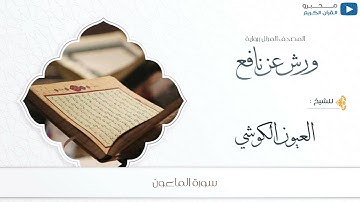 محبرو
القرآن الكريم
المصحف المرتل برواية
ورش عن نافع
للشيخ :
العيون الكوشي
سورة الماعون